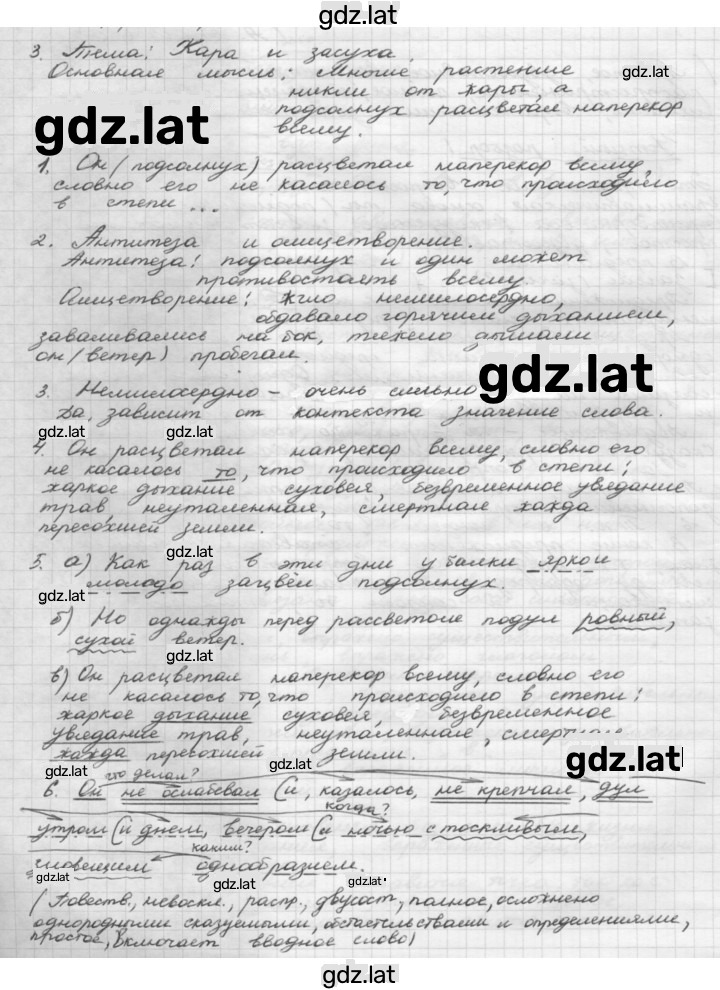 gdz.lat
3. Тема: Жара и засуха.
Основная мысль: Многие растения
gdz.lat
никли от жары, а
подсолнух расцветал наперекор
всему.
gdz.lat
1. Он (подсолнух) расцветал наперекор всему,
словно его не касалось то, что происходило
в степи ...
2. Антитеза и олицетворение.
Антитеза: подсолнух и один может
противостоять всему.
Олицетворение: жгло немилосердно,
обдавало горячим дыханием,
заваливались на бок, тяжело дышали
он (ветер) пробегал.
gdz.lat
3. Немилосердно – очень сильно
Да, зависит от контекста значение слова.
gdz.lat gdz.lat
4. Он расцветал наперекор всему, словно его
не касалось то, что происходило в степи:
жаркое дыхание суховея, безвременное увядание
трав, неуталенная, смертная жажда
пересохшей земли.
gdz.lat
5. а) Как раз в эти дни у балки ярко и
молодо зацвёл подсолнух.
gdz.lat
б) Но однажды перед рассветом подул ровный,
сухой ветер.
gdz.lat
в) Он расцветал наперекор всему, словно его
не касалось то, что происходило в степи:
жаркое дыхание суховея, безвременное
увядание трав, неуталенная,
жажда перевохшей земли.
gdz.lat
gdz.lat
что делал?
6. Он не ослабевал (и, казалось, не крепчал, дул
когда?
утром (и днем, вечером (и ночью с тоскливым,
каким?
зловещим однообразием.
gdz.lat gdz.lat gdz.lat
(Повеств., невоскл., распр., двусост., полное, осложнено
однородными сказуемыми, обстоятельствами и определениями,
простое, включает вводное слово)
gdz.lat